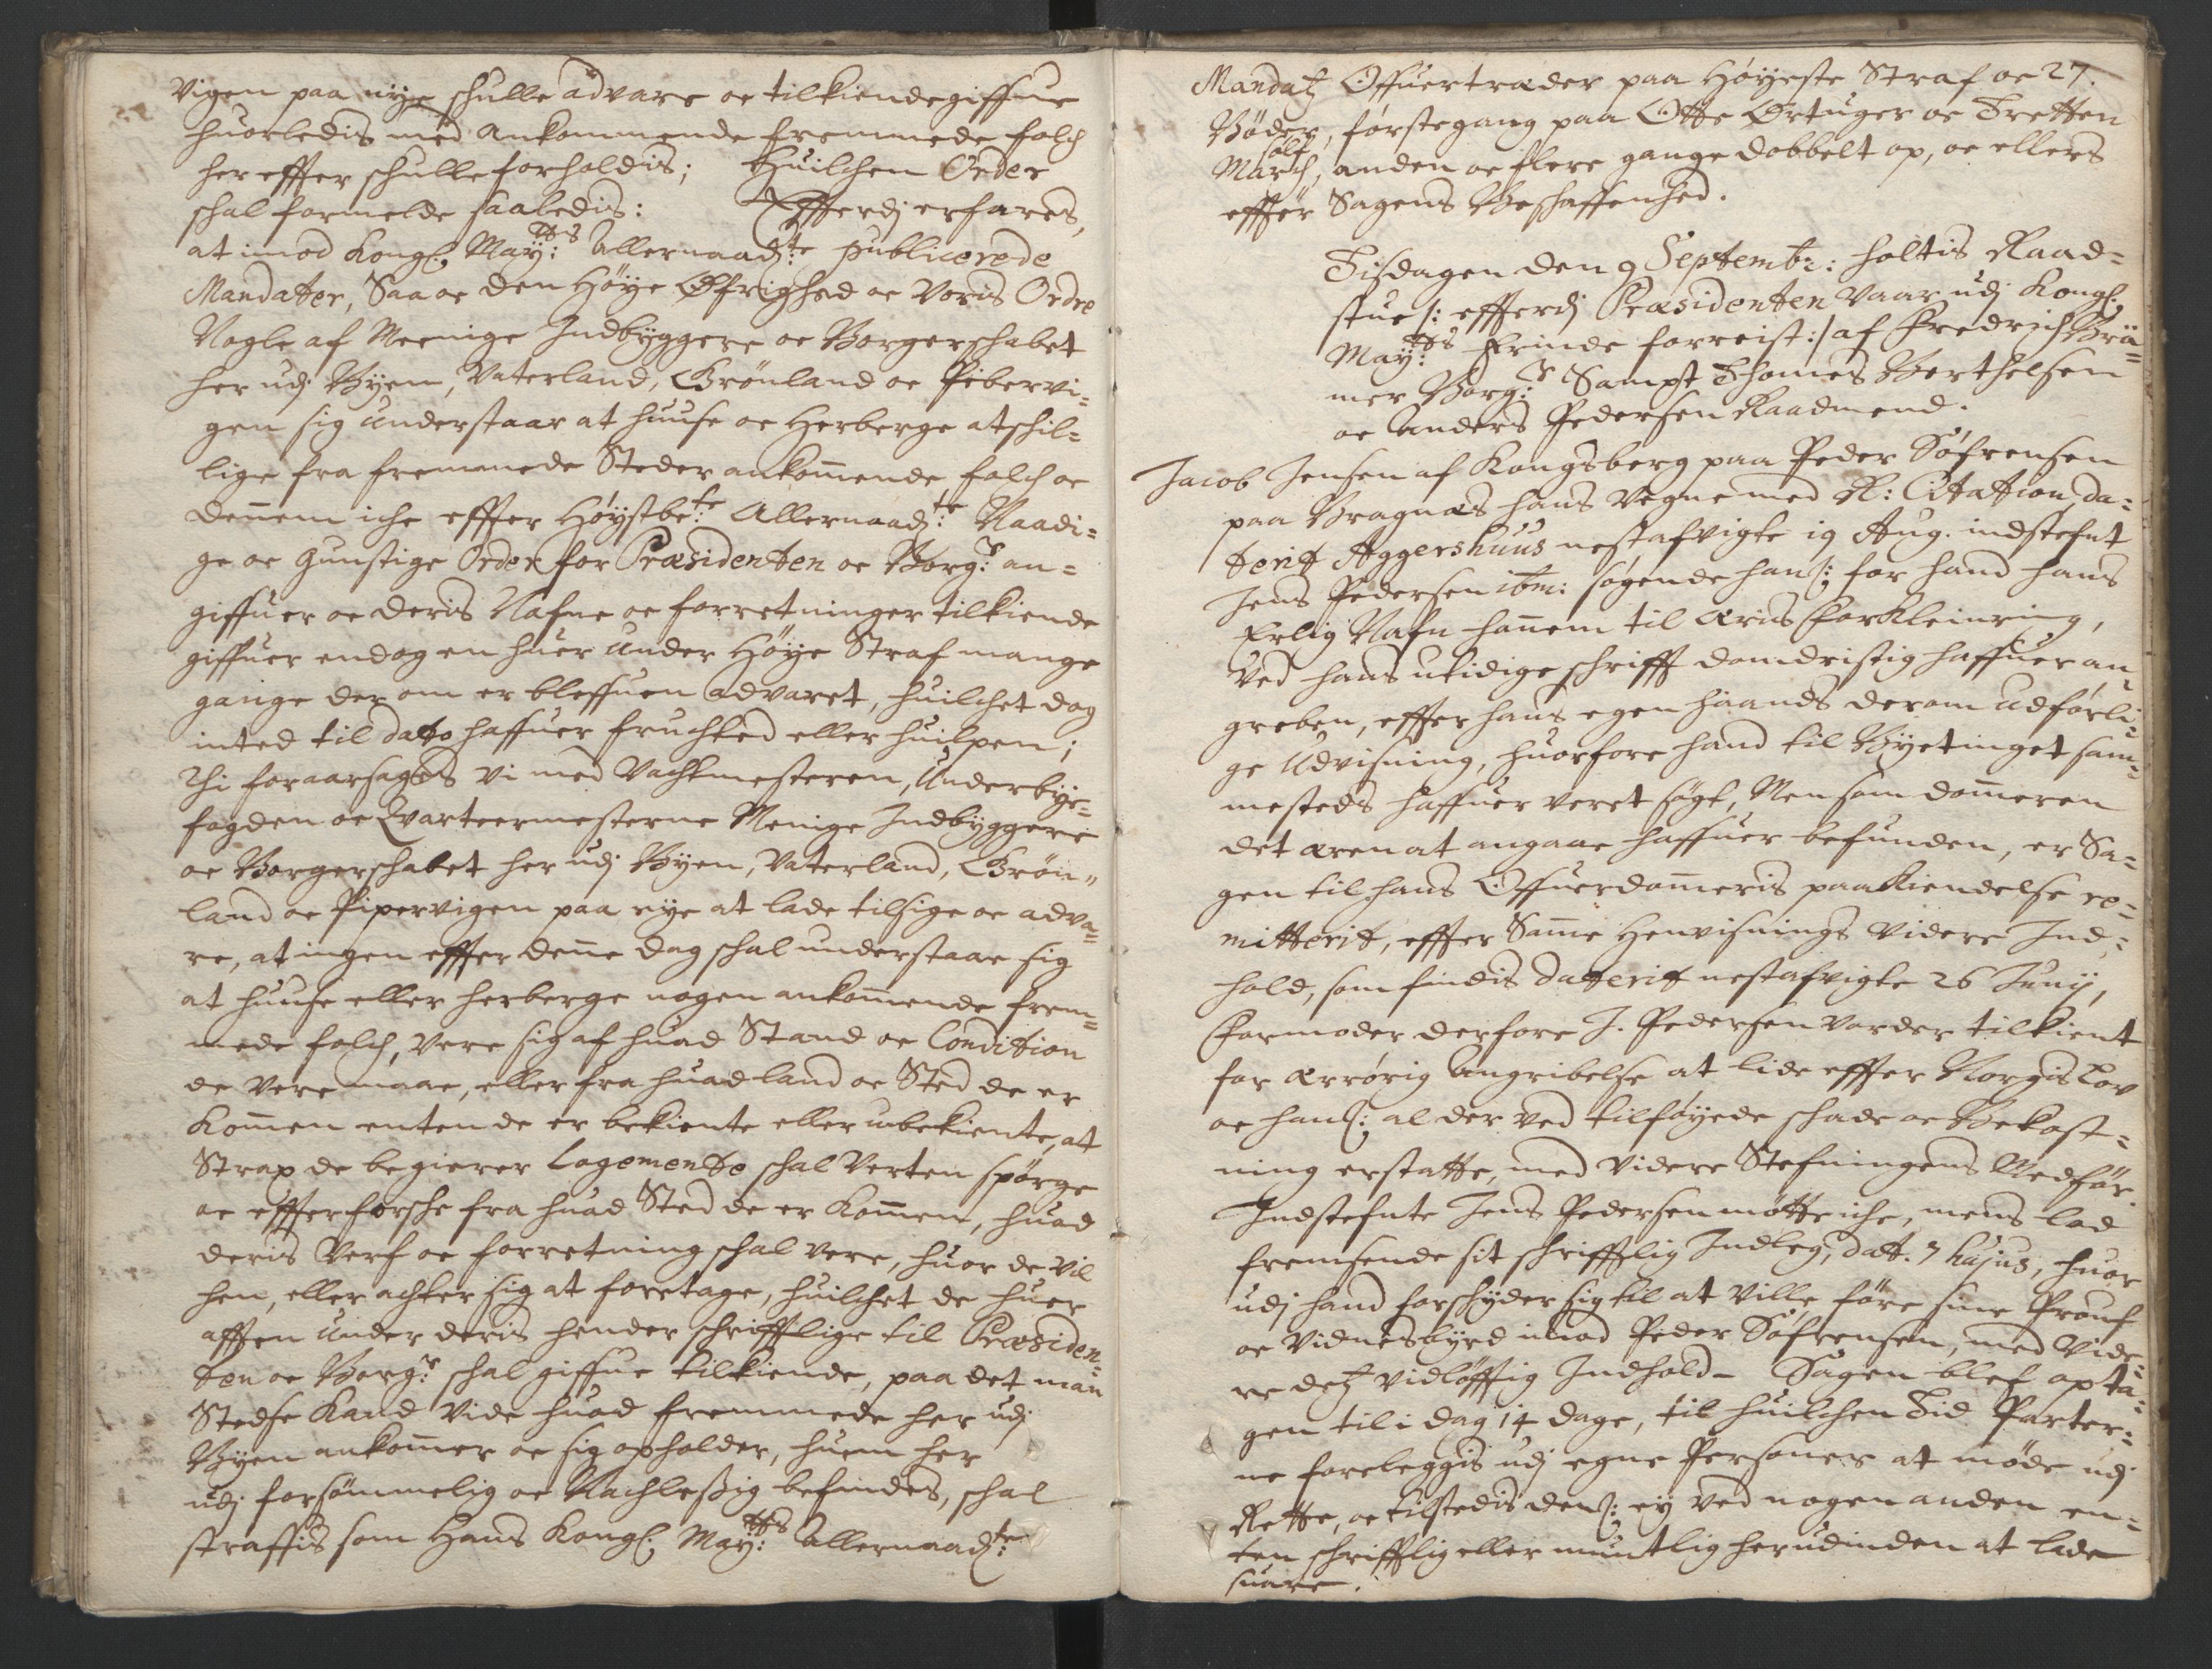 Vigen paa nye schulle advare oc tilkiendegiffue
huorledis med ankommende fremmede folch
her effter schulle forholdis; Huilchen Order
schal formelde saaledis: Effterdj erfares,
at imod Kongl: May:tts allernaadj:te publicerede
Mandater, Saa oc den Høye Øfrighed oc Voris Ordre
Nogle af Meenige Indbyggere oc Borgerschabet
her udj Byen, Vaterland, Grønland oc Pebervi=
gen sig understaar at huuse oc Herberge atschil=
lige fra fremmede Steder ankom̄ende folch oc
dennem iche effter Høystbe:te Allernaadj:te Naadi=
ge oc gunstige Order for Præsidenten oc Borg:r an=
giffuer oc deris Nafne oc forretninger tilkiende
giffuer endog en huer under Høye Straf mange
gange der om er bleffuen advaret, huilchet dog
inted til dato haffuer fruchted eller huilpen;
Thi foraarsagis vi med Vachtmesteren, Underbye=
fogden oc Qvarteermesterne Menige Indbyggere
oc Borgerschabet her udj Byen, Vaterland, Grøn=
land oc Pipervigen paa nye at lade tilsige oc adva=
re, at ingen effter denne dag schal understaae sig
at huuse eller herberge nogen ankom̄ende frem=
mede folch, vere sig af huad Stand oc Condition
de vere maae, eller fra huad land oc Sted de er
Kom̄en enten de er bekiente eller ubekiente, at
Strax de begierer Logemente schal Verten spørge
oc effterforsche fra huad Sted de er Kom̄en, huad
deris Verf oc forretning schal vere, huor de vil
hen, eller achter sig at foretage, huilchet de huer
afften under deris hender schrifftlige til Præsiden=
ten oc Borg:r schal giffue tilkiende, paa det man
Stedse Kand vide huad fremmede her udj
Byen ankom̄er oc sig opholder, huem her
udj forsømmelig oc Nachleßig befindes, schal
straffis som Hans Kongl: May:tts allernaadj:te
Mandatz Offuertræder paa Høyeste Straf oc 27.
Bøder, førstegang paa Otte Ørtuger oc Tretten
March sølf, anden oc flere gange dobbelt op, oc ellers
effter Sagens Beschaffenhed.
Tisdagen den 9 Septembr: holtis Raad=
stue /: effterdj Præsidenten vaar udj Kongl:
May:tts Erinde forreist :/ af Fredrich Brä=
mer Borg:r Sampt Thomes Berthelsen
oc Anders Pedersen Raadmend.
Jacob Jensen af Kongsberg paa Peder Søfrensen
paa Bragnæs hans vegne med R: Citation da=
terit Aggershuus nestafvigte 19 Aug. indstefnt
Jens Pedersen ibm: søgende hans: for hand hans
Erlig Nafn hannem til æris forkleinring,
Ved hans utidige schrifft domdristig haffuer an=
greben, effter hans egen haands derom udførli=
ge udvisning, huorfore hand til Byetinget sam=
mesteds haffuer veret søgt, Men som dom̄eren
det æren at angaae haffuer befunden, er Sa=
gen til hans Offuerdom̄eris paakiendelse re=
mitterit, effter Sam̄e Henvisnings videre Ind=
hold, som findis daterit nestafvigte 26 Junij,
Formoder derfore J. Pedersen vorder tilkient
for ærrørig angribelse at lide effter Norgis Lov
oc hans: al der ved tilføyede schade oc Bekost=
ning erstatte, med videre Stefningens Medfør.
Indstefnte Jens Pedersen møtte iche, mens lod
fremsende sit schrifftlig Indleg, dat. 7 hujus, huor
udj hand forschyder sig til at ville føre sine Prouf
oc Vidnesbyrd imod Peder Søfrensen, med vide=
re detz vidløfftig Indhold – Sagen blef opta=
gen til i dag 14 dage, til huilchen Tid Parter=
ne foreleggis udj egne Personer at møde udj
Rette, oc tilstedis dens: ey ved nogen anden en=
ten schrifftlig eller muntlig herudinden at lade
suare.